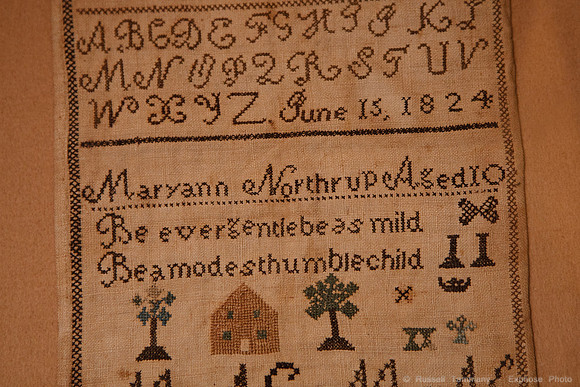 A B C D E F G H I P K L
M N O P Q R S T U V
W X Y Z. June 15, 1824
Maryann Northrup Aged 10
Be ever gentle be as mild
Be a modest humble child
© Russell
Photo